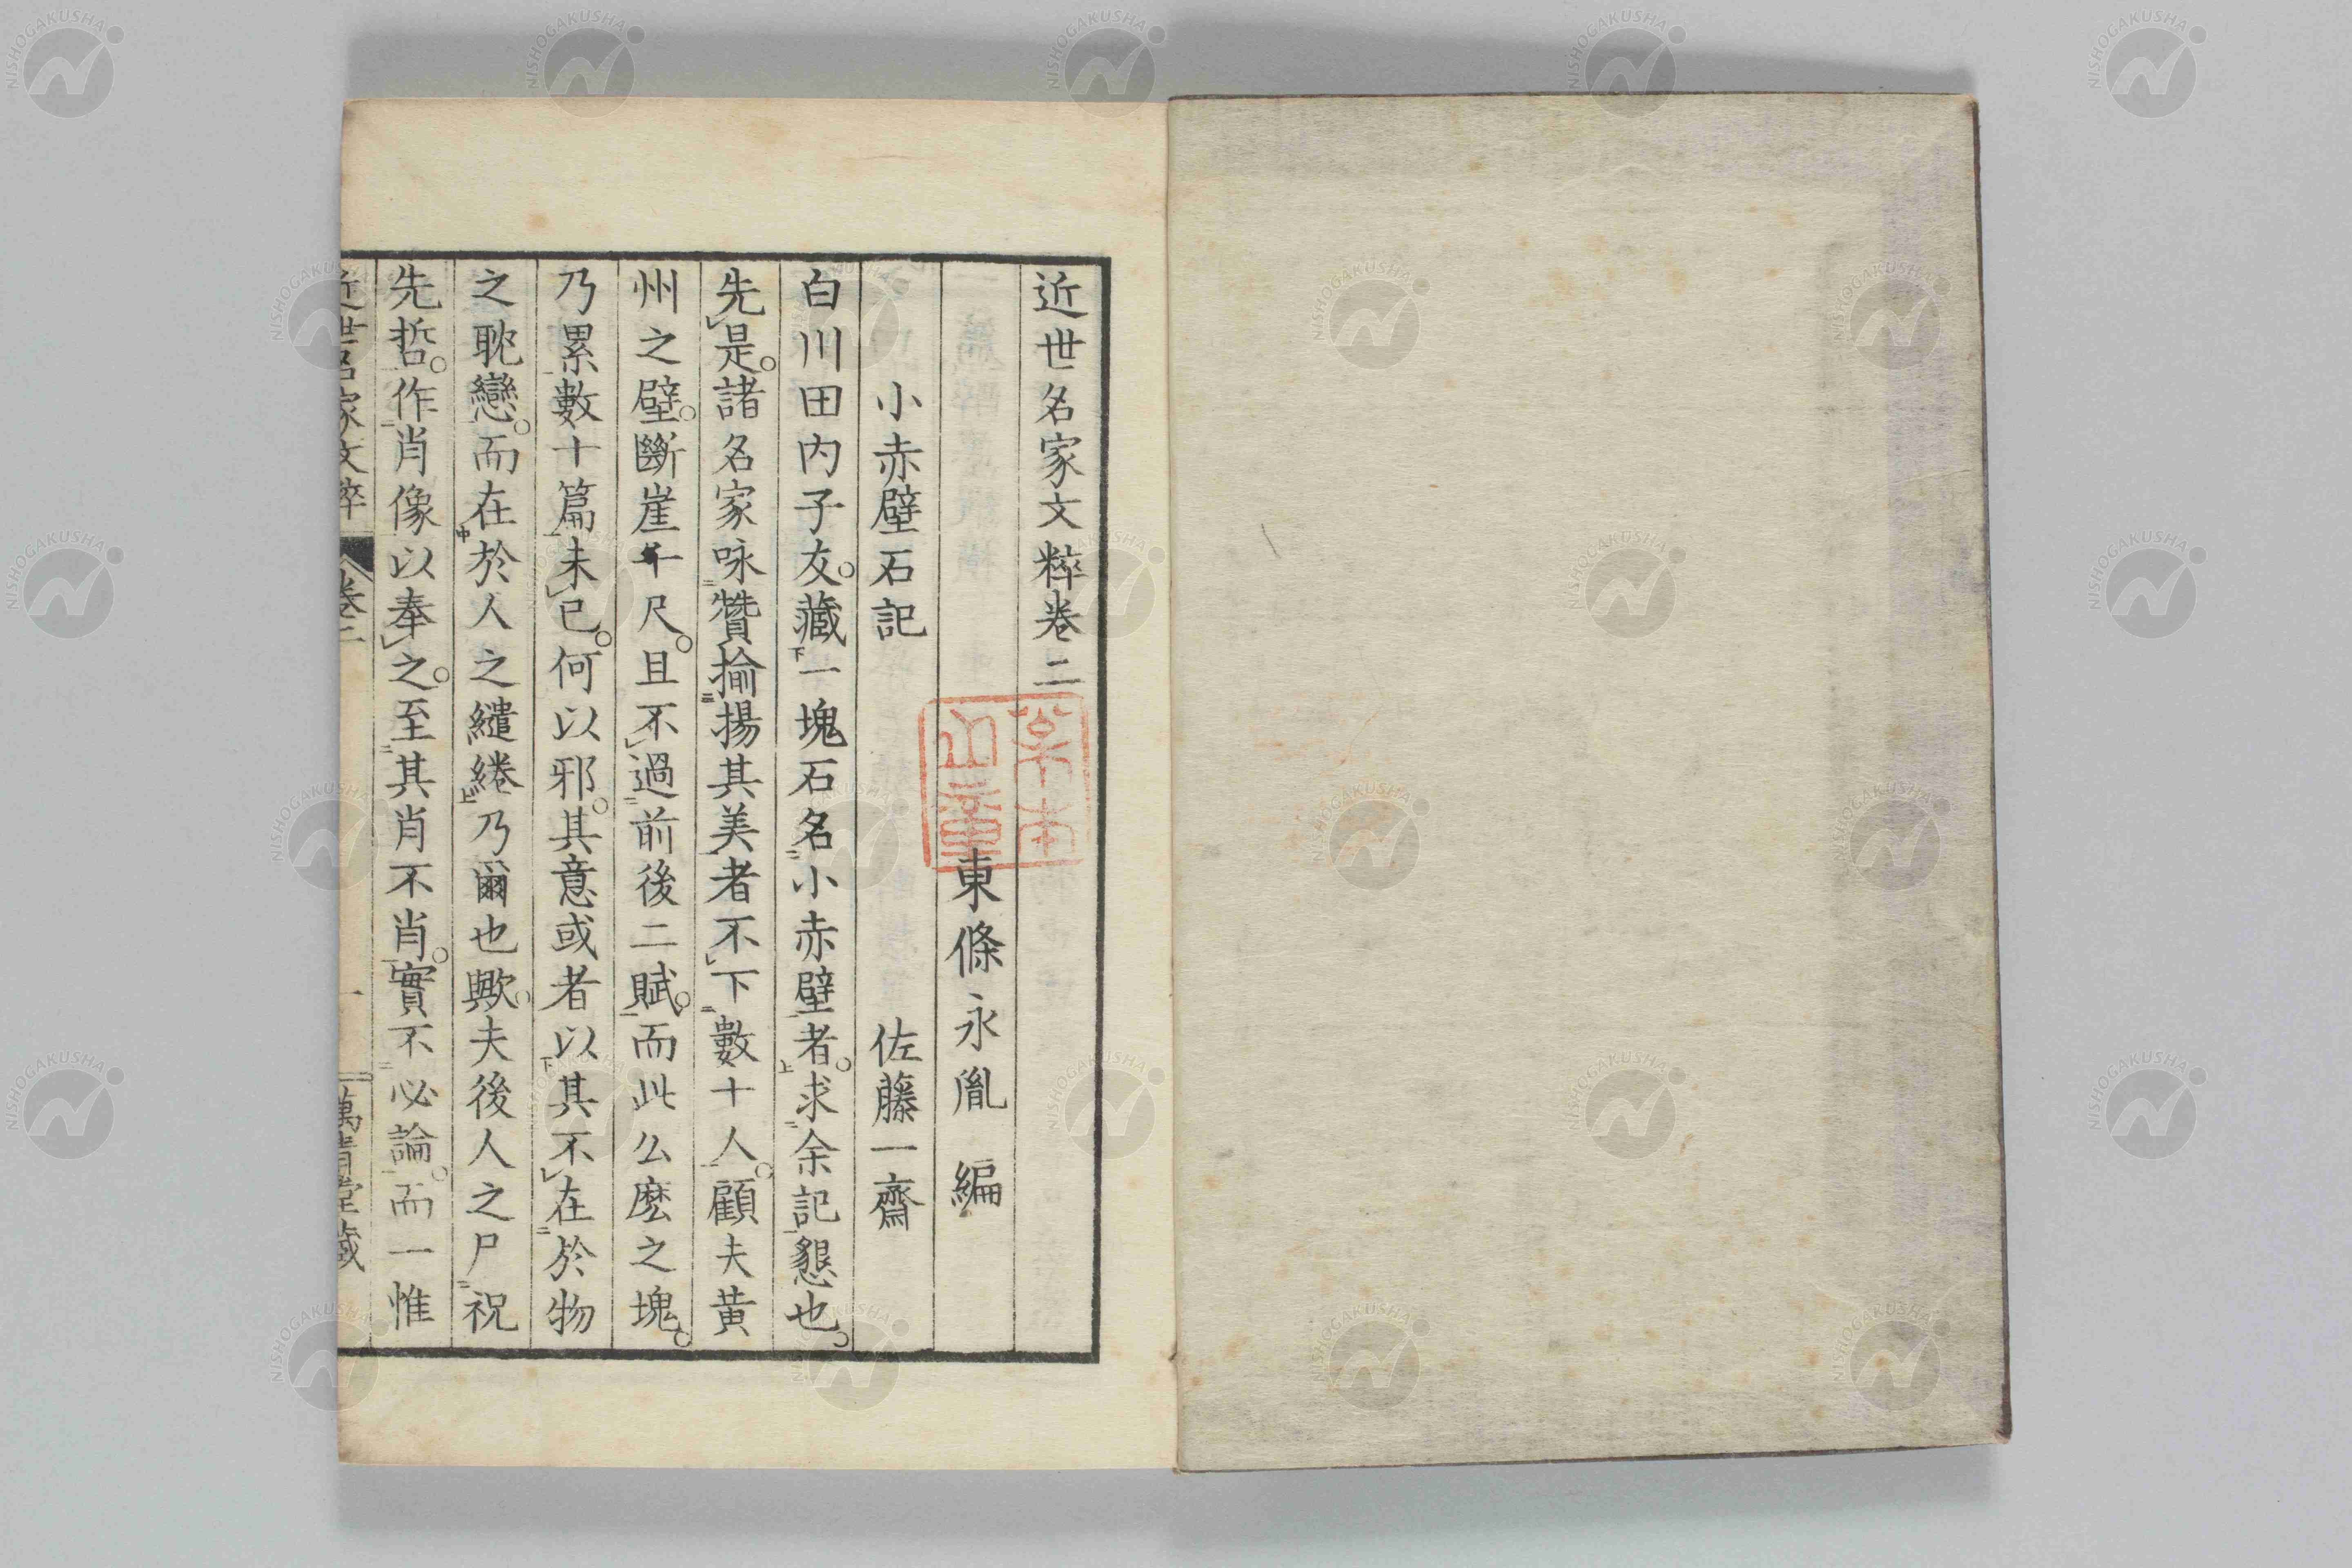 近世名家文粹卷二
東條永胤 編
小赤壁石記 佐藤一齋
白川田内子友。藏下一塊石名二小赤壁一者上。求二余記一懇也。
先レ是。諸名家咏二贊揄三揚其美一者不レ下二數十人一。顧夫黄
州之壁。斷崖千尺。且不レ過二前後二賦一。而此公麼之塊。
乃累二數十篇一未レ已。何以邪。其意或者以下其不レ在二於物
之耽戀一。而在中於人之繾綣上乃爾也歟。夫後人之尸二祝
先哲一。作二肖像以奉一レ之。至二其肖不肖一。實不二必論一。而一惟
近世名家文粹 卷二 一 萬青堂藏
NISHOGAKUSHA